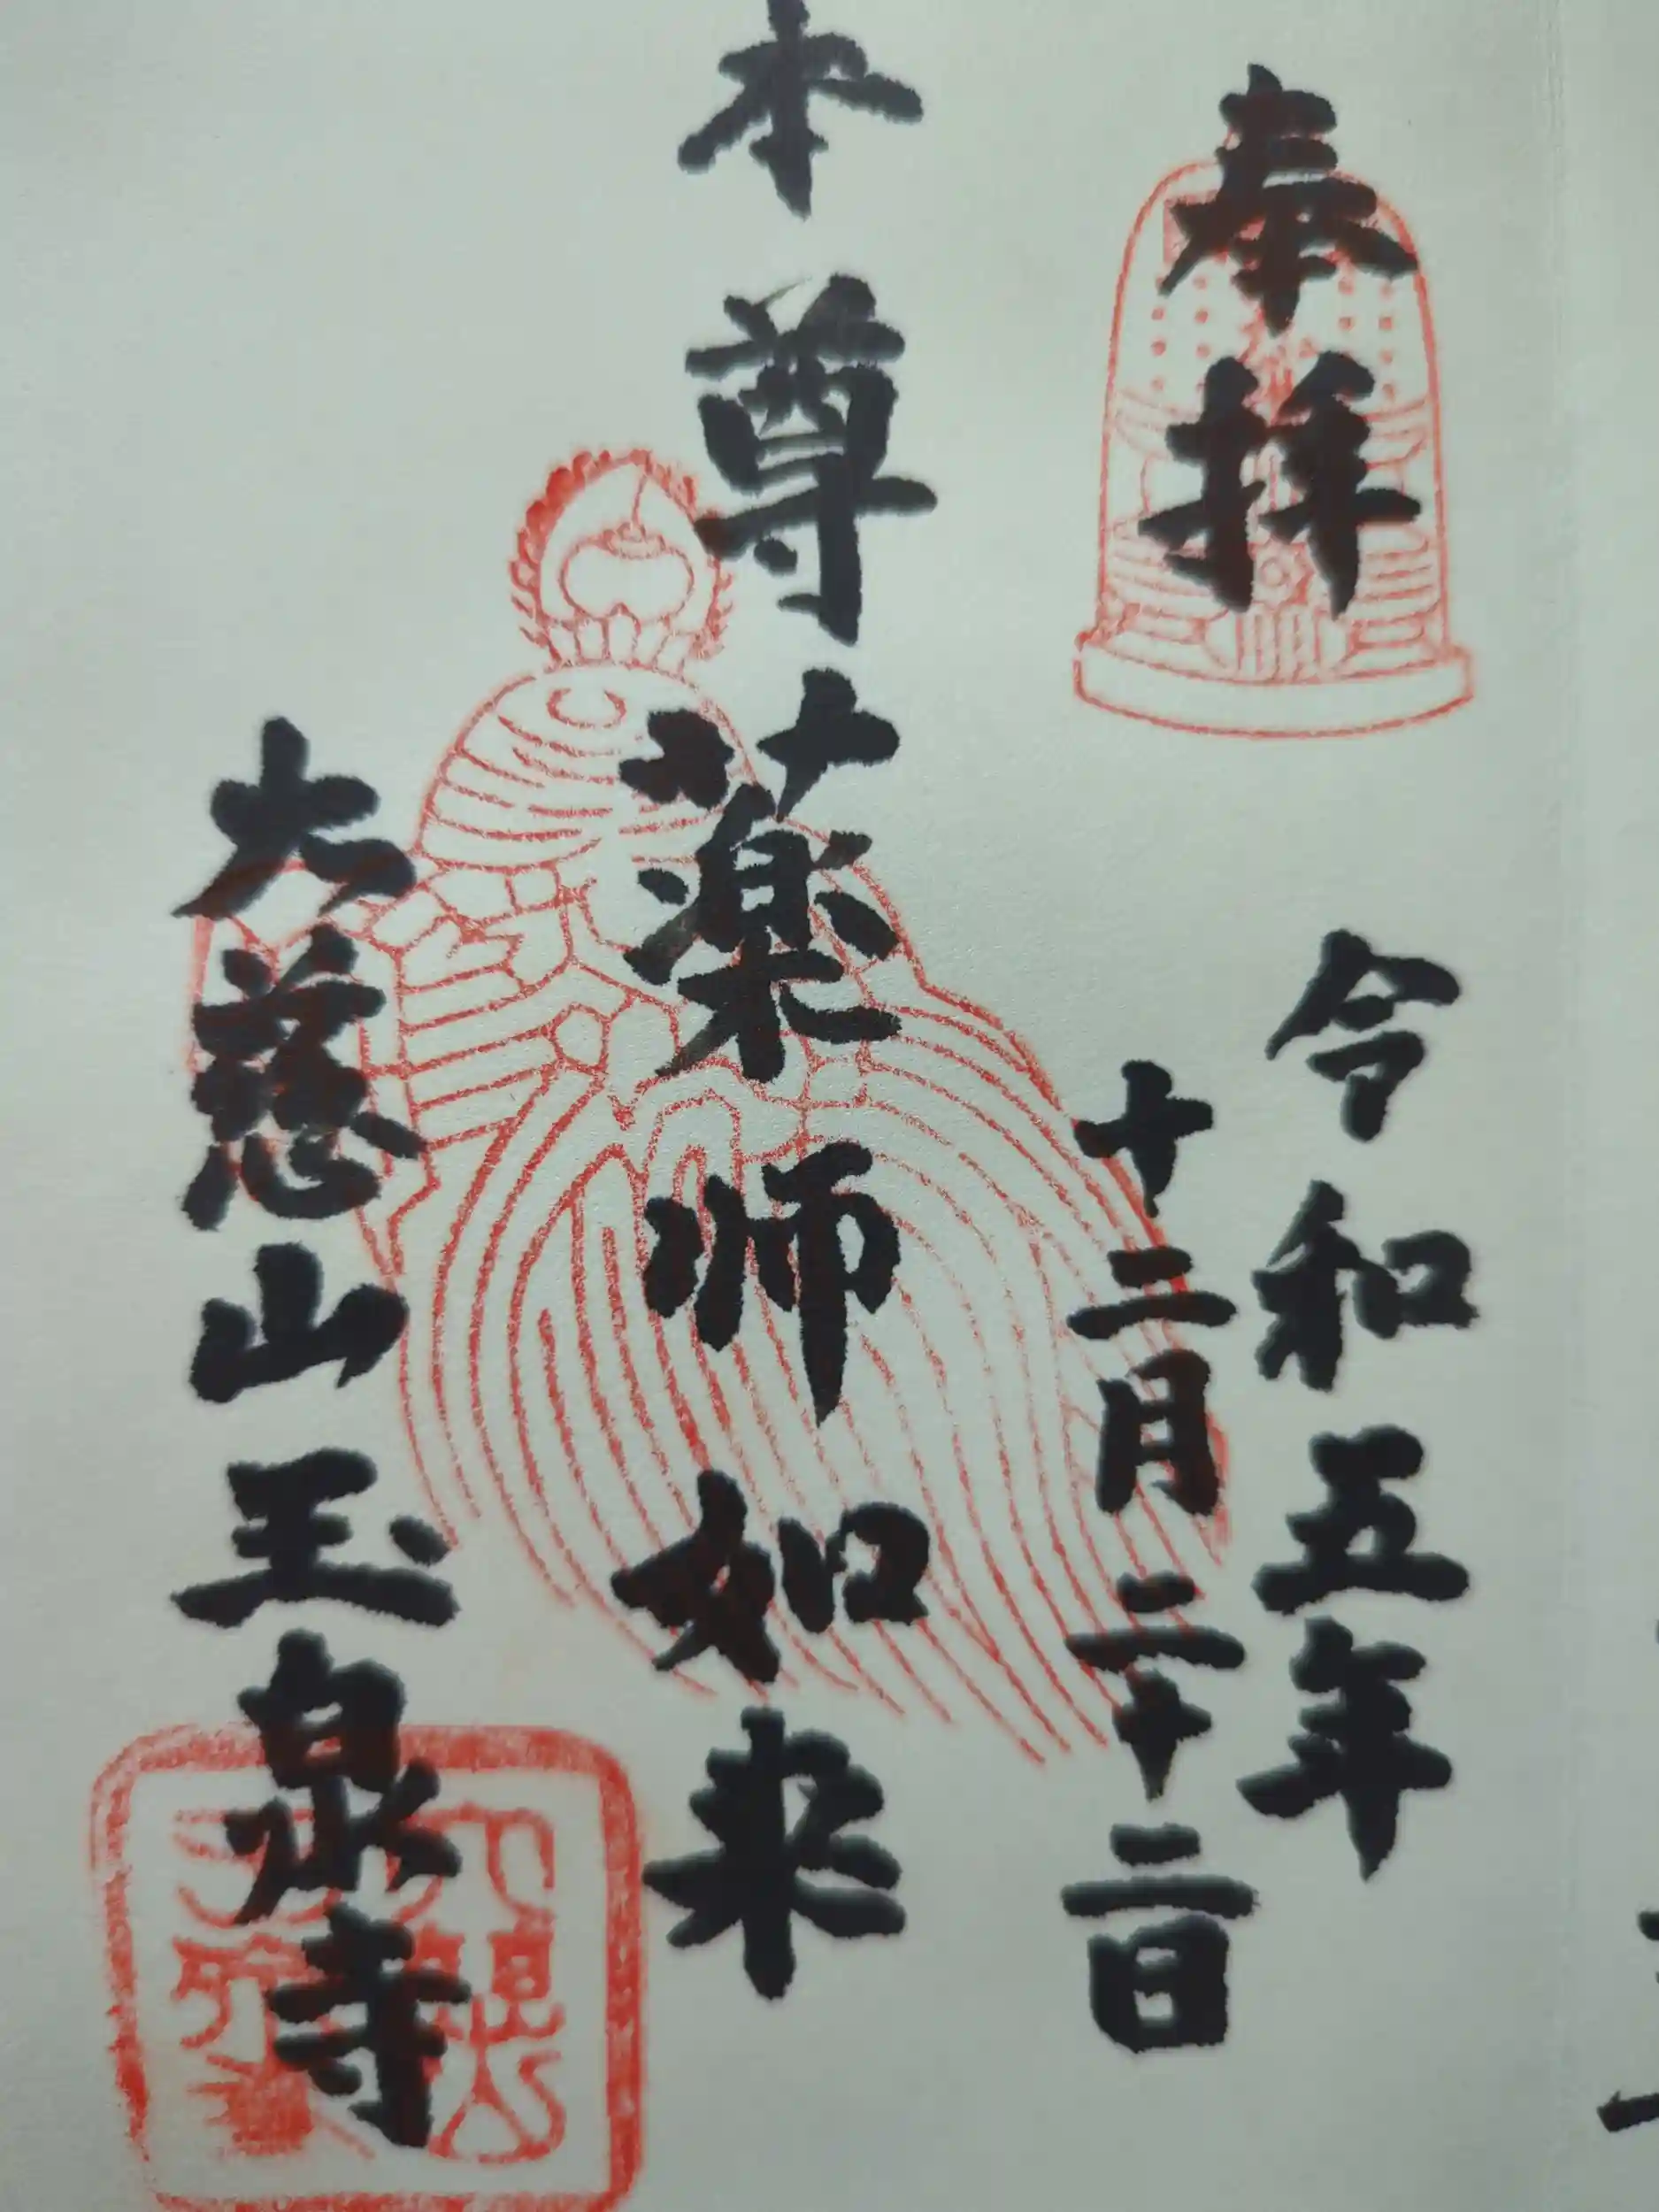 奉拝
令和五年
十二月二十二日
本尊薬师如来
大慈山玉泉寺